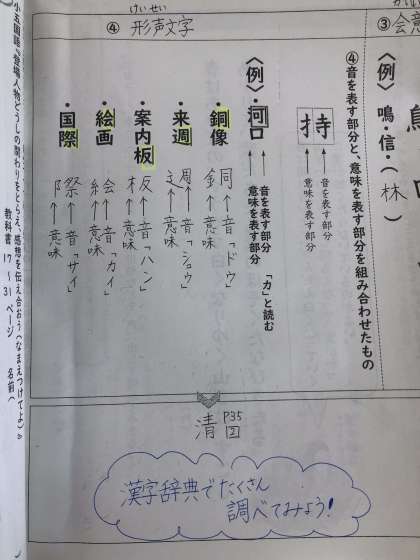 ③会意
〈例〉鳴・信・(林)
けいせい
④ 形声文字
④音を表す部分と、意味を表す部分を組み合わせたもの
持
音を表す部分
意味を表す部分
〈例〉・河口
音を表す部分 「カ」と読む
意味を表す部分
・銅像
同→音「ドウ」
釒→意味
・来週
周→音「シュウ」
辶→意味
・案内板
反→音「ハン」
木→意味
・絵画
会→音「カイ」
糸→意味
・国際
祭→音「サイ」
阝→意味
清 P35
2
漢字辞典でたくさん
調べてみよう!
小五国語『登場人物どうしの関わりをとらえ、感想を伝え合おう(なまえつけてよ)』
教科書 17~31ページ 名前(